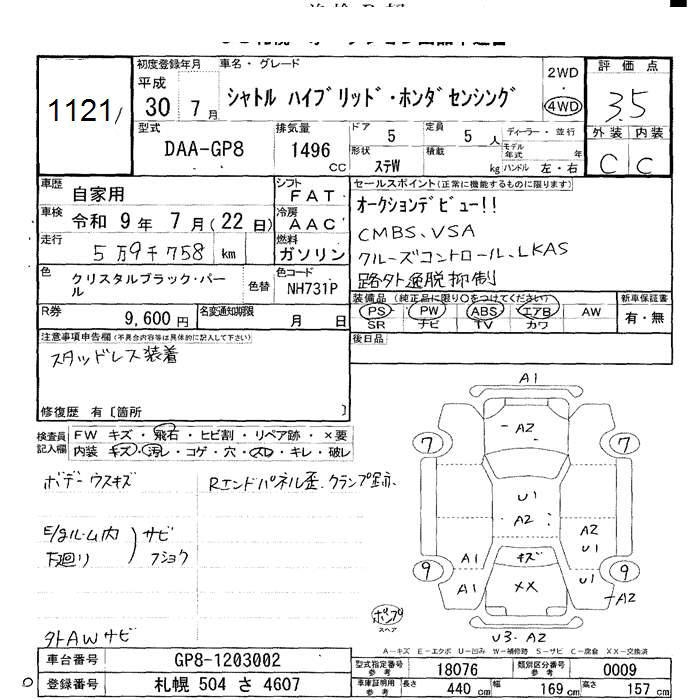 初度登録年月 車名・グレード
平成 30年 7月 シャトル ハイブリッド・ホンダセンシング 2WD 4WD
評価点
3.5
1121
外装 内装
C C
型式 DAA-GP8 排気量 1496 CC
ドア 5 定員 5人 ディーラー・並行
形状 ステW 積載 kg モデル年式 年 ハンドル 左・右
車歴 自家用 シフト FAT
車検 令和 9年 7月(22日) 冷房 AAC
走行 5万9千758 km 燃料 ガソリン
色 クリスタルブラック・パール 色替 色コード NH731P
R券 9,600円 名変通知期限 月 日
セールスポイント(正常に機能するものに限ります)
オークションデビュー!!
CMBS、VSA
クルーズコントロール、LKAS
路外逸脱抑制
装備品(純正品に限り○をつけてください) 新車保証書
PS PW ABS エアB AW 有・無
SR ナビ TV カワ
後日品
注意事項申告欄(不具合内容等は具体的に記入して下さい)
スタッドレス装着
修復歴 有〔箇所 〕
検査員記入欄 FW キズ・飛石・ヒビ割・リペア跡・×要
内装 キズ・汚レ・コゲ・穴・スレ・キレ・破レ
ボデーウスキズ Rエンドパネル歪、クランプ跡、
E/gルーム内 サビ
下廻り フショク
タトAWサビ
A1
A2
7 7
U1
A2
A2
U1
A1 キズ
9 9
A1 XX U1
A2
ポンプ
スペア
U3・A2
A-キズ E-エクボ U-凹み W-補修跡 S-サビ C-腐食 XX-交換済
車台番号 GP8-1203002 型式指定番号 参考 18076 類別区分番号 参考 0009
登録番号 札幌 504 さ 4607 車庫証明用 参考 長さ 440 cm 幅 169 cm 高さ 157 cm